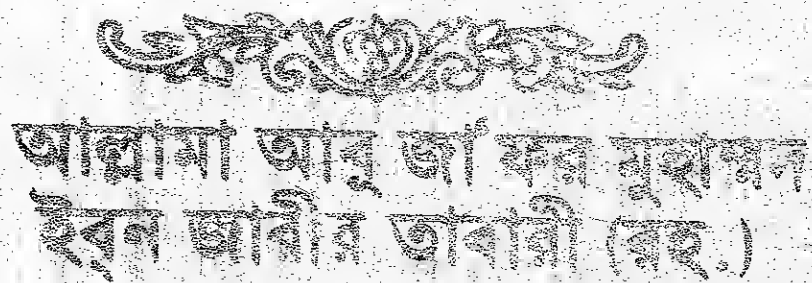 আল্লামা আবু জা'ফর মুহাম্মদ
ইবন জারীর তাবারী (রহ.)